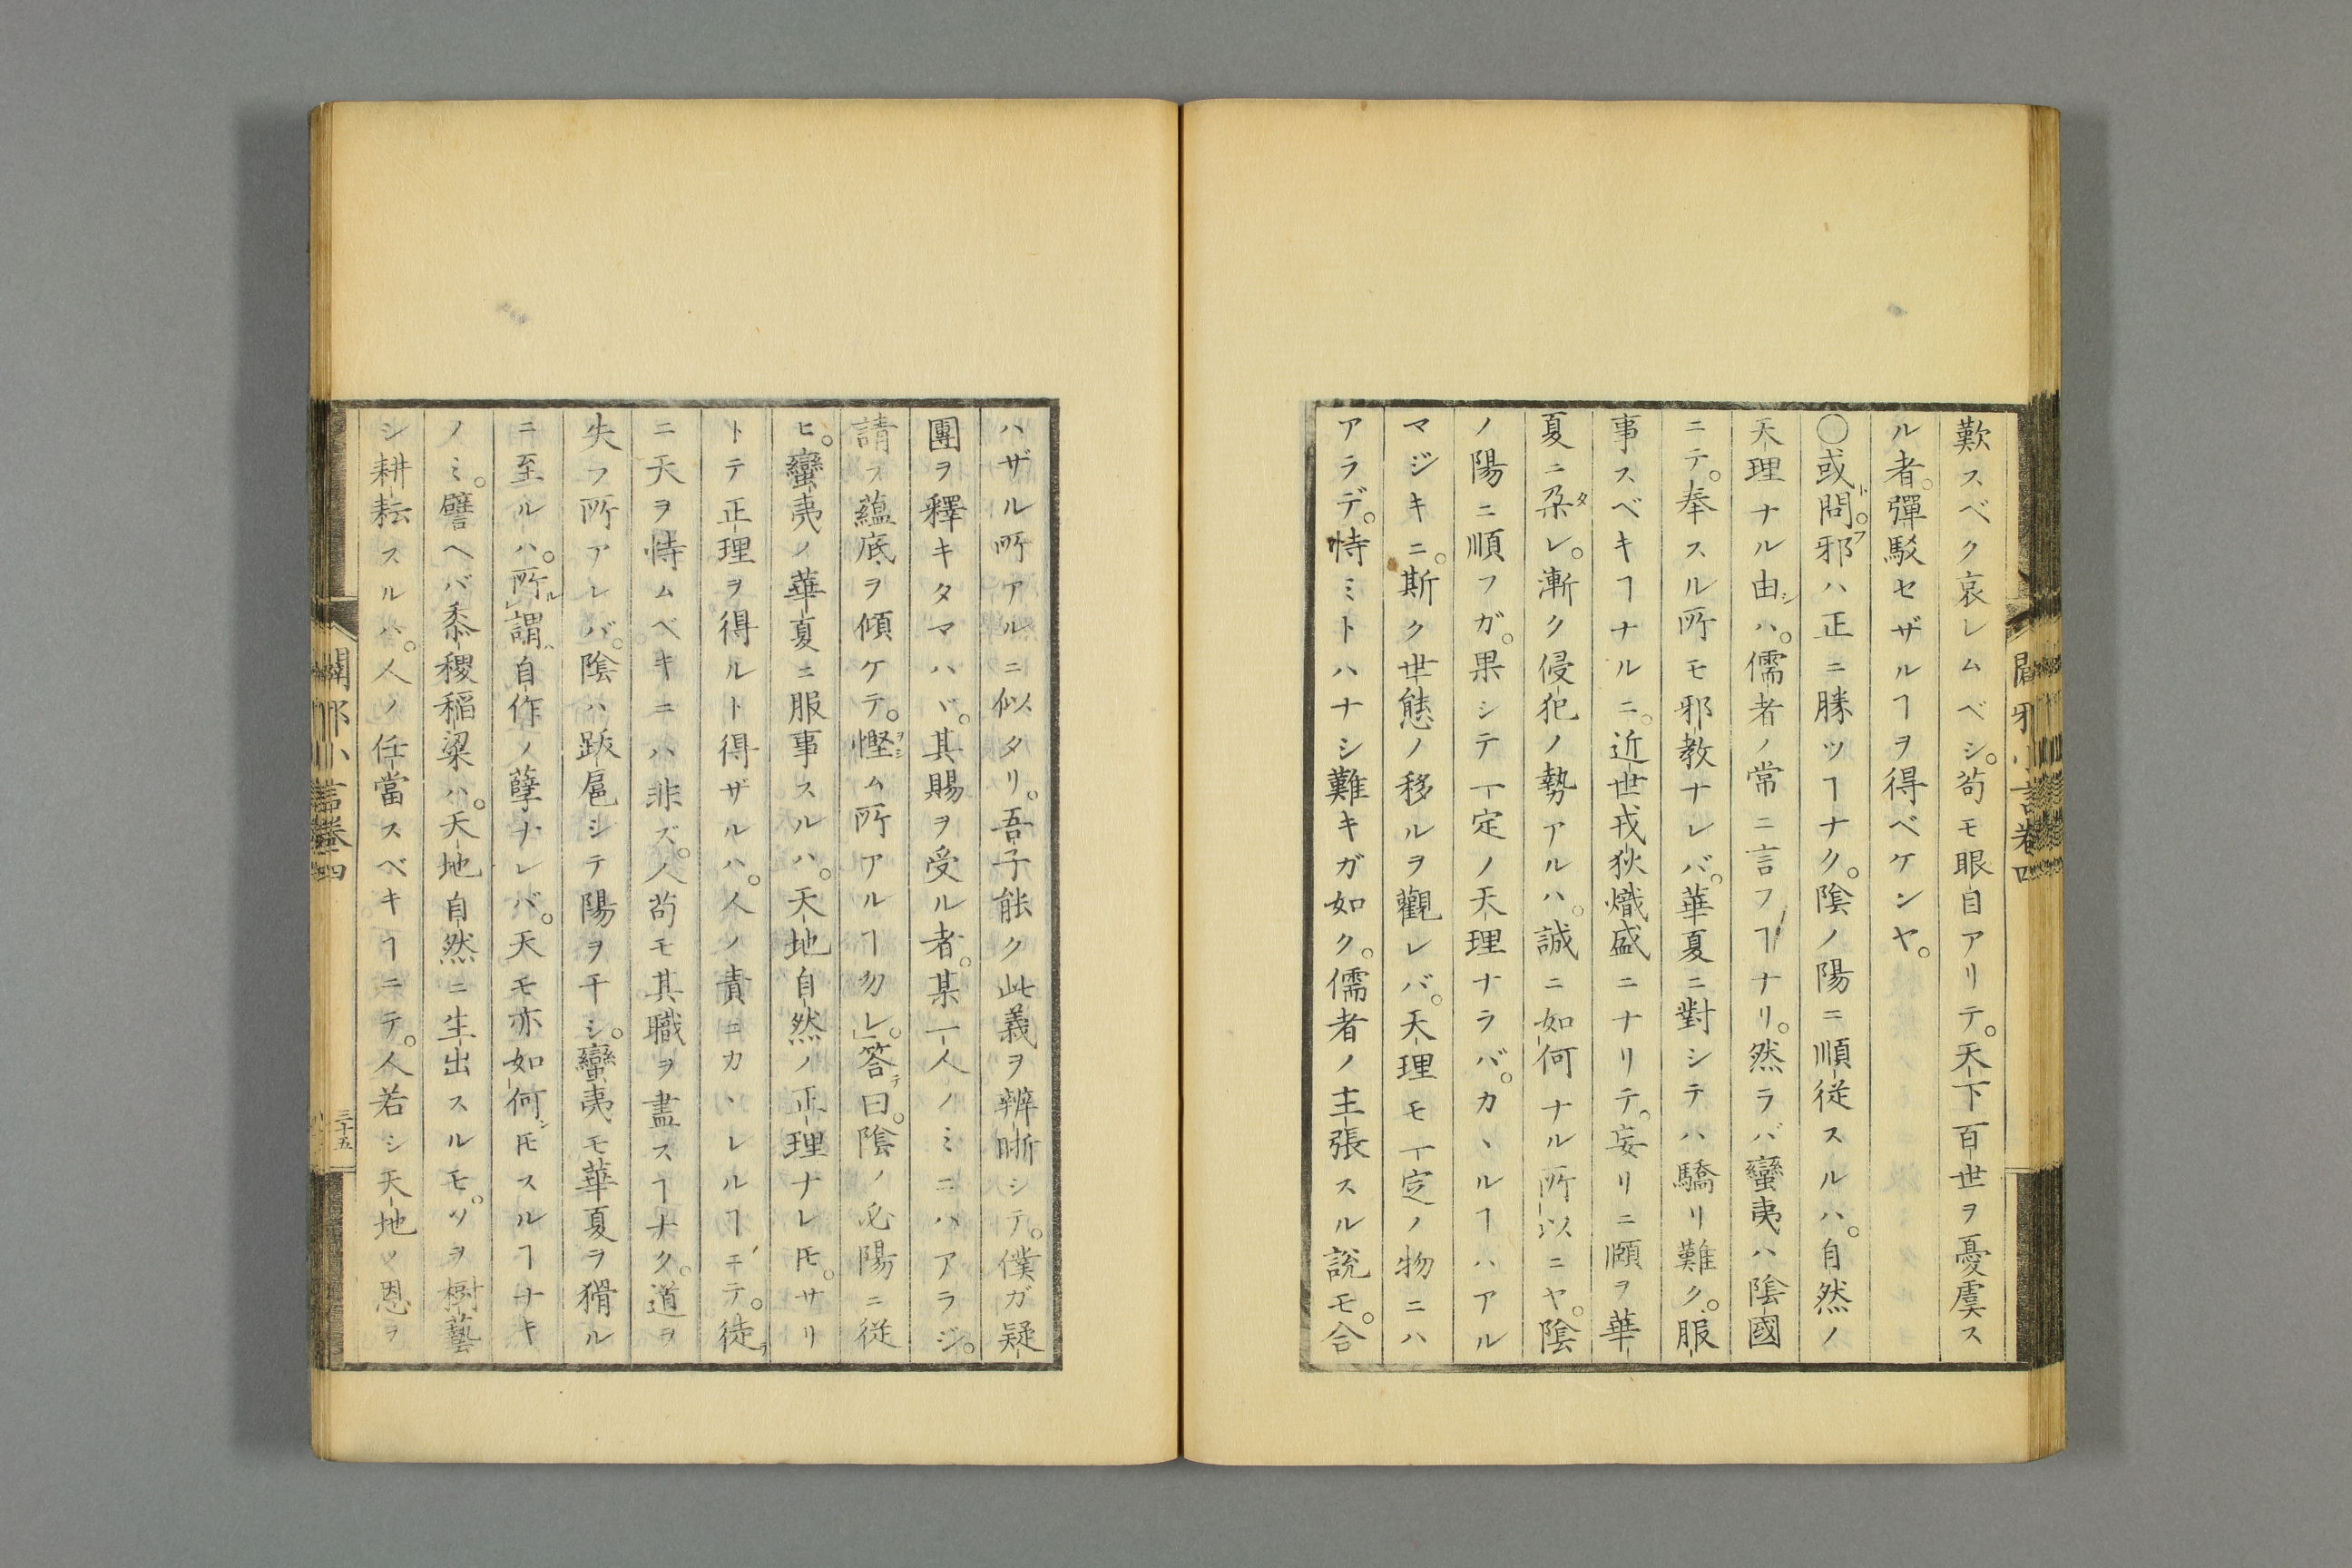 歎スベク哀レムベシ。苟モ眼目アリテ。天下百世ヲ憂虞ス
ル者。彈駁セザルヿヲ得ベケンヤ。
○或問。邪ハ正ニ勝ツヿナク。陰ノ陽ニ順從スルハ。自然ノ
天理ナル由ハ。儒者ノ常ニ言フヿナリ。然ラバ蠻夷ハ陰國
ニテ。奉スル所モ邪教ナレバ。華夏ニ對シテハ驕リ難ク。服
事スベキヿナルニ。近世戎狄熾盛ニナリテ。妄リニ頤ヲ華
夏ニ朶レ。漸ク侵犯ノ勢アルハ。誠ニ如何ナル所以ニヤ。陰
ノ陽ニ順フガ。果シテ一定ノ天理ナラバ。カヽルヿハアル
マジキニ。斯ク世態ノ移ルヲ觀レバ。天理モ一定ノ物ニハ
アラデ。恃ミトハナシ難キガ如ク。儒者ノ主張スル說モ。合
ハザル所アルニ似タリ。吾子能ク此義ヲ辨晰シテ。僕ガ疑
團ヲ釋キタマハヾ。其賜ヲ受ル者。某一人ノミニハアラジ。
請フ蘊底ヲ傾ケテ。慳ム所アルヿ勿レ。」答曰。陰ノ必陽ニ從
ヒ。蠻夷ノ華夏ニ服事スルハ。天地自然ノ正理ナレ𪜈。サリ
トテ正理ヲ得ルト得ザルハ。人ノ責ニカヽレルヿニテ。徒
ニ天ヲ恃ムベキニハ非ズ。人苟モ其職ヲ盡スヿナク。道ヲ
失フ所アレバ。陰ハ跋扈シテ陽ヲ干シ。蠻夷モ華夏ヲ猾ル
ニ至ルハ。所謂自作ノ孽ナレバ。天モ亦如何𪜈スルヿナキ
ノミ。譬ヘバ黍稷稻粱ハ。天地自然ニ生出スルモ。ソヲ樹藝
シ耕耘スルハ。人ノ任當スベキヿニテ。人若シ天地ノ恩ヲ
闢邪小言卷四
三十五